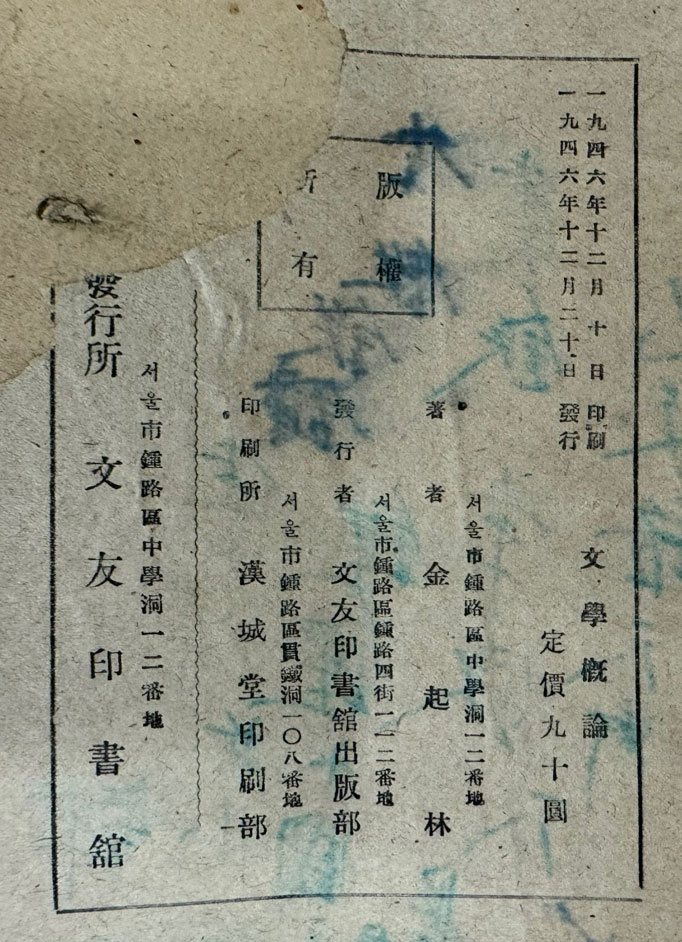 一九四六年十二月十日 印刷
一九四六年十二月二十日 發行
文學槪論
定價九十圓
版權
所有
서울市鍾路區中學洞一二番地
著者 金起林
서울市鍾路區鍾路四街一一二番地
發行者 文友印書舘出版部
서울市鍾路區貫鐵洞一〇八番地
印刷所 漢城堂印刷部
서울市鍾路區中學洞一二番地
發行所 文友印書舘